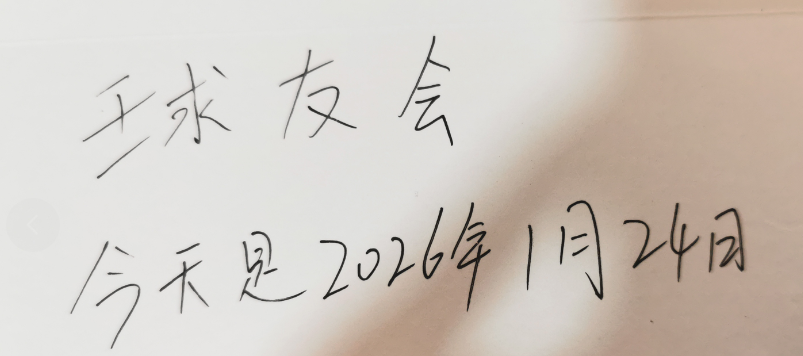 球友会
今天是2026年1月24日